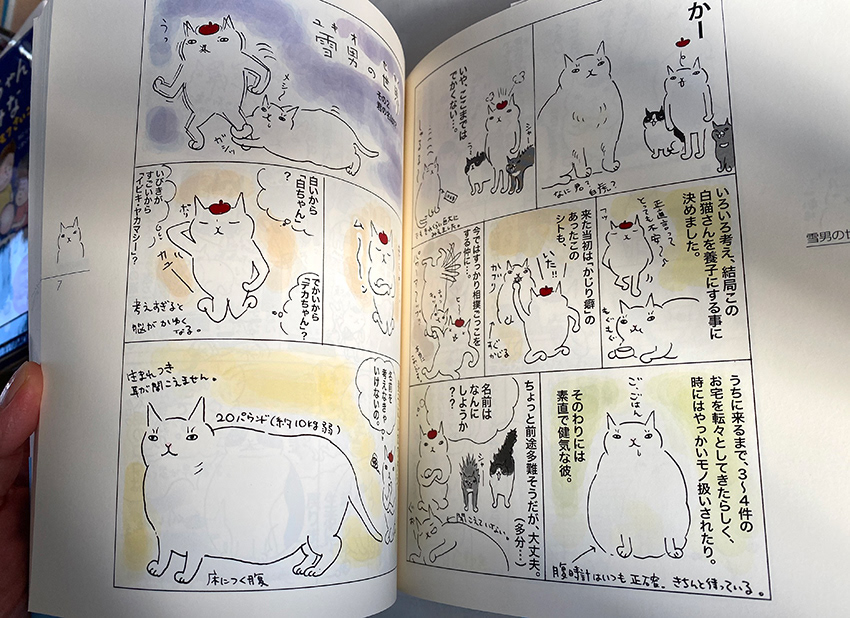 かー
シャー
いや、ここまで
でかくない…。
なに、君？
いろいろ考え、結局この
白猫さんを養子にする事に
決めました。
正直言って
とっても不安…
もぐもぐ
来た当初は「かじり癖」の
あったこの
シトも、
いた!!
かぷり
すぐ
かじる
今ではすっかり相撲ごっこを
する仲に…。
うちに来るまで、3〜4件の
お宅を転々としてきたらしく、
時にはやっかいモノ扱いされたり。
ごっごはん
そのわりには
素直で健気な彼。
腹時計はいつも正確。きちんと待っている。
ちょっと前途多難そうだが、大丈夫。
(多分…)
名前は
なんに
しようか
??
聞こえていない。
雪男のせ
ユキオ
雪男の世
うっ
メシ〜
ガシッ
ムーン
白いから
「白ちゃん」
?
でかいから
「デカちゃん」?
いびきが
すごいから
「イビキ・ヤカマシー」?
ガー
考えすぎると
脳がかゆくなる。
名前を
考えなきゃ
いけないの。
生まれつき
耳が聞こえません。
20パウンド(約10kg弱)
床につく腹
7